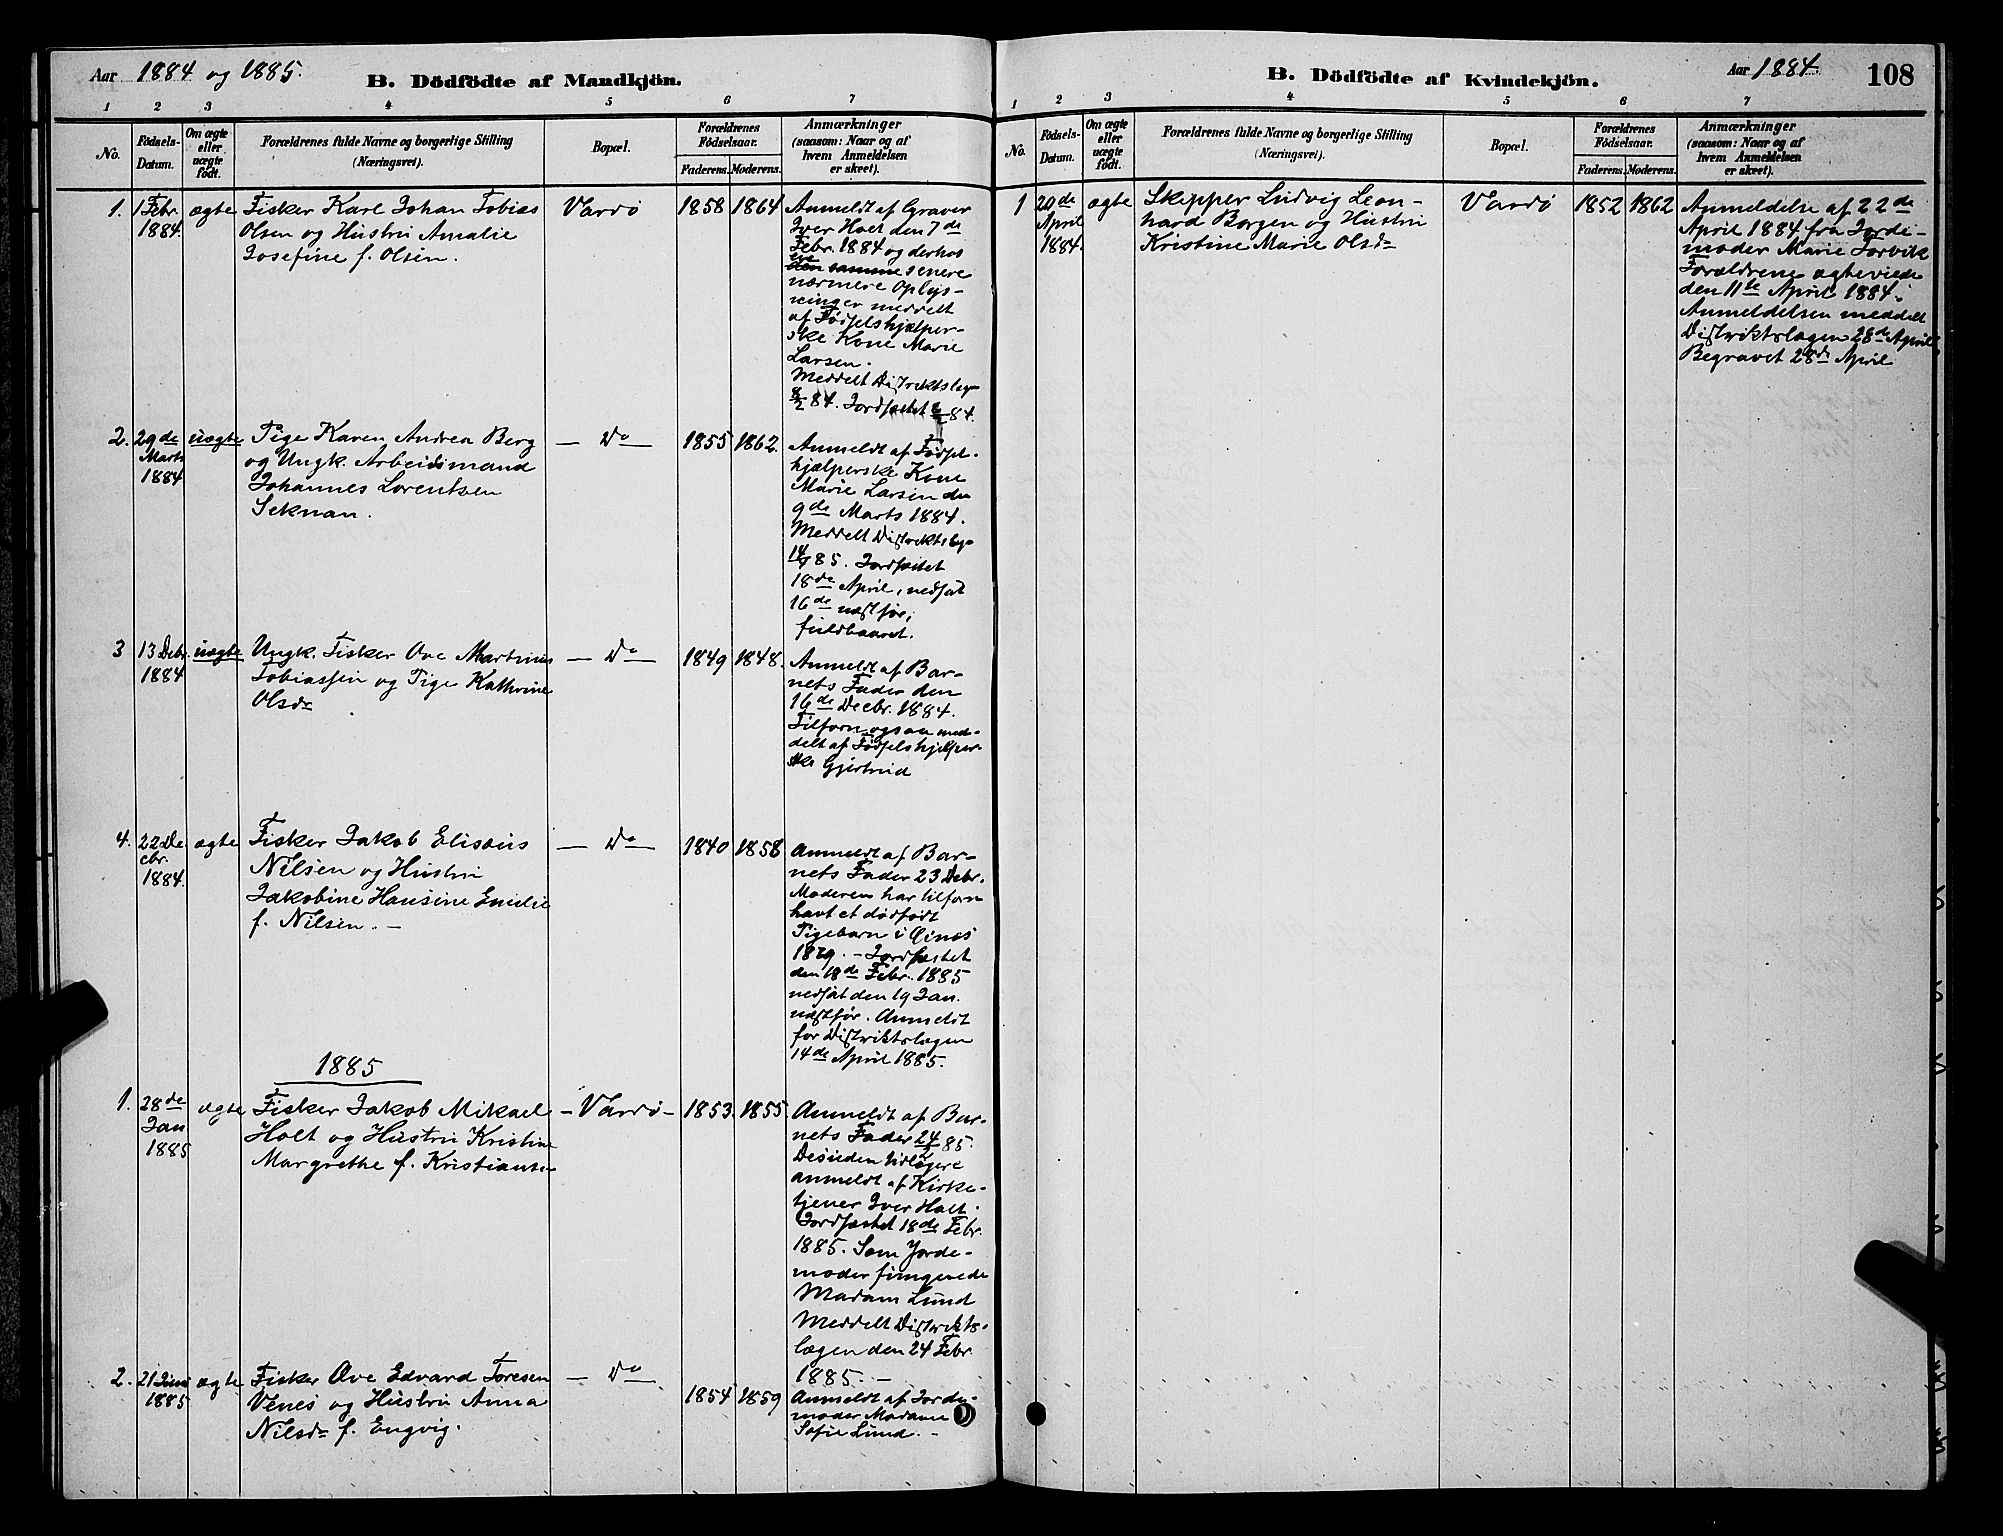 Aar 1884 og 1885.
B. Dödfödte af Mandkjön.
1 2 3 4 5 6 7
No.
Födsels-
Datum.
Om ægte
eller
uægte
födt.
Forældrenes fulde Navne og borgerlige Stilling
(Næringsvei).
Bopæl.
Forældrenes
Födselsaar.
Faderens. Moderens.
Anmærkninger
(saasom: Naar og af
hvem Anmeldelsen
er skeet).
1. 1 Febr. 1884. ægte
Fisker Karl Johan Tobias
Olsen og Hustru Amalie
Josefine f. Olsen.
Vardø 1858 1864
Anmeldt af Graver
Iver Holt den 7de
Febr. 1884 og derhos
den samme senere
nærmere Oplys-
ninger meddelt
af Fødselshjælper-
ske Kone Marie
Larsen.
Meddelt Distriktslæg-
8/2 84. Jordfæstet 84.
2. 29de Marts 1884 uægte
Pige Karen Andrea Berg
og Ungk. Arbeidsmand
Johannes Lorentsen
Seknan.
— Do — 1855 1862.
Anmeldt af Fødsel-
hjælperske Kone
Marie Larsen den
9de Marts 1884.
Meddelt Distriktslæg-
14/4 85. Jordfæstet
18de April, nedsat
16de næst før;
fuldbaaret.
3 13 Debr. 1884 uægte
Ungk. Fisker Ove Martinus
Tobiassen og Pige Kathrine
Olsdr
— Do — 1849 1848.
Anmeldt af Bar-
nets Fader den
16de Decbr. 1884.
Tilforn ogsaa med-
delt af Fødselshjelper-
ske Gjertrud
4. 22 De
cbr.
1884. ægte
Fisker Jakob Elisæus
Nilsen og Hustru
Jakobine Hansine Emilie
f. Nilsen. —
— Do — 1840 1858
Anmeldt af Bar-
nets Fader 23 Debr.
Moderen har tilforn
havt et dødfødt
Pigebarn i
1879. — Jordfæstet
den 18de Febr. 1885
nedsat den 19 Jan.
næst før. Anmeldt
for Distriktslægen
14de April 1885.
1885
1. 28de Jan 1885 ægte
Fisker Jakob Mikael
Holt og Hustru Kristine
Margrethe f. Kristiansen
— Vardø — 1853. 1855.
Anmeldt af Bar-
nets Fader 24/2 85.
Desuden tidligere
anmeldt af Kirke-
tjener Iver Holt.
Jordfæstet 18de Febr.
1885. Som Jorde-
moder fungerede
Madam Lund
Meddelt Distrikts-
lægen den 24 Febr.
1885. —
2. 21 Juni 1885 ægte
Fisker Ove Edvard Toresen
Venes og Hustru Anna
Nilsdr f. Engvig.
— Do — 1854 1859
Anmeldt af Jorde-
moder Madam
Sofie Lund. —
B. Dödfödte af Kvindekjön.
Aar 1884. 108
1 2 3 4 5 6 7
No.
Födsels-
Datum.
Om ægte
eller
uægte
födt.
Forældrenes fulde Navne og borgerlige Stilling
(Næringsvei).
Bopæl.
Forældrenes
Födselsaar.
Faderens. Moderens.
Anmærkninger
(saasom: Naar og af
hvem Anmeldelsen
er skeet).
1 20de April 1884. ægte
Skipper Ludvig Leon-
hard Borgen og Hustru
Kristine Marie Olsdr
Vardø 1852 1862
Anmeldelse af 22de
April 1884 fra Jorde-
moder Marie Torvik
Forældrene ægteviede
den 11te April 1884.
Anmeldelsen meddelt
Distriktslægen 28de April
Begravet 28de April